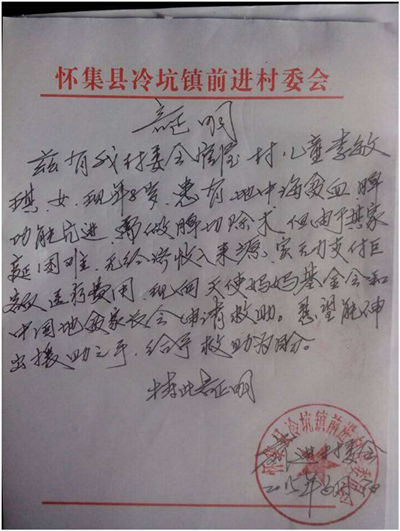 怀集县冷坑镇前进村委会
证明
兹有我村委会 村儿童李敏
琪,女,现年8岁,患有地中海贫血,脾
功能亢进,需做脾切除术,但由于其家
庭困难,无经济收入来源,实无力支付巨
额医疗费用,现向天使妈妈基金会和
中国地贫家长会申请救助。恳望能伸
出援助之手,给予救助为盼。
特此证明
怀集县冷坑镇前进村委会
前进村委会
2015年